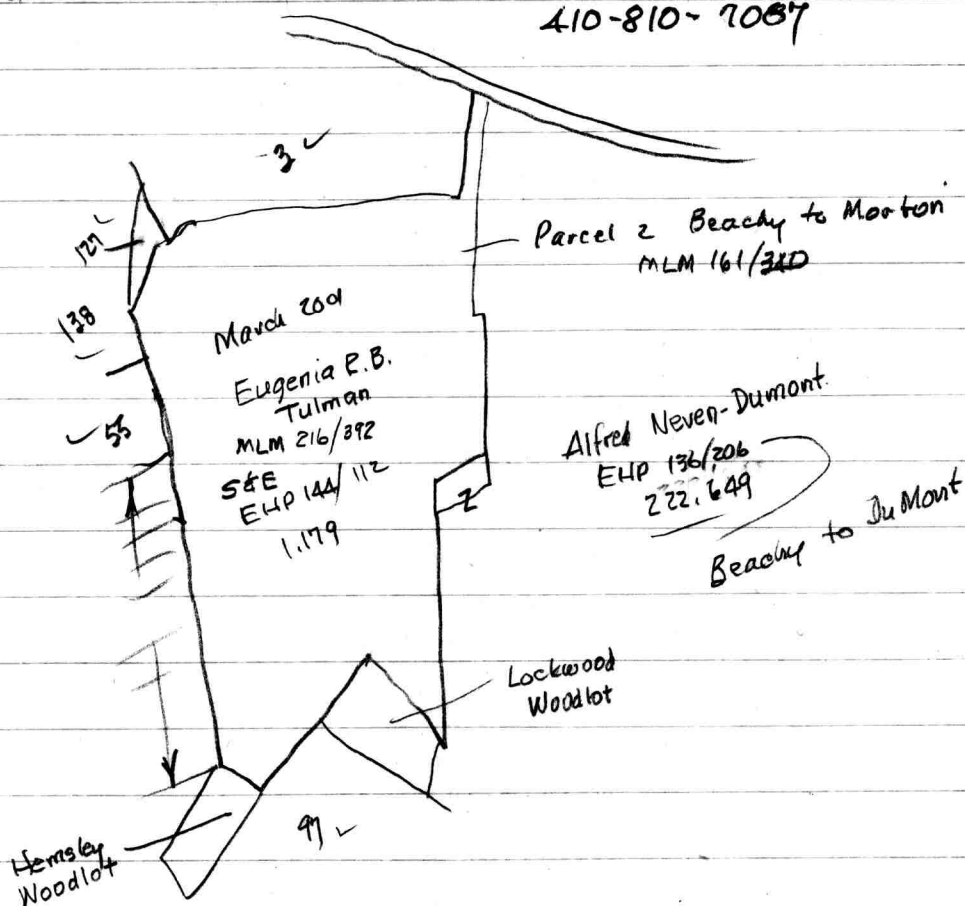 410-810-7087
3 ✓
127 ✓
Parcel 2 Beachy to Morton
MLM 161/310
138 ✓
March 2001
Eugenia R.B.
Tulman
MLM 216/392
S&E
EHP 144/112
1.179
✓ 55
Alfred Neven-Dumont
EHP 136/206
222.649
Beachy to DuMont
Z
Lockwood
Woodlot
97 ✓
Hemsley
Woodlot